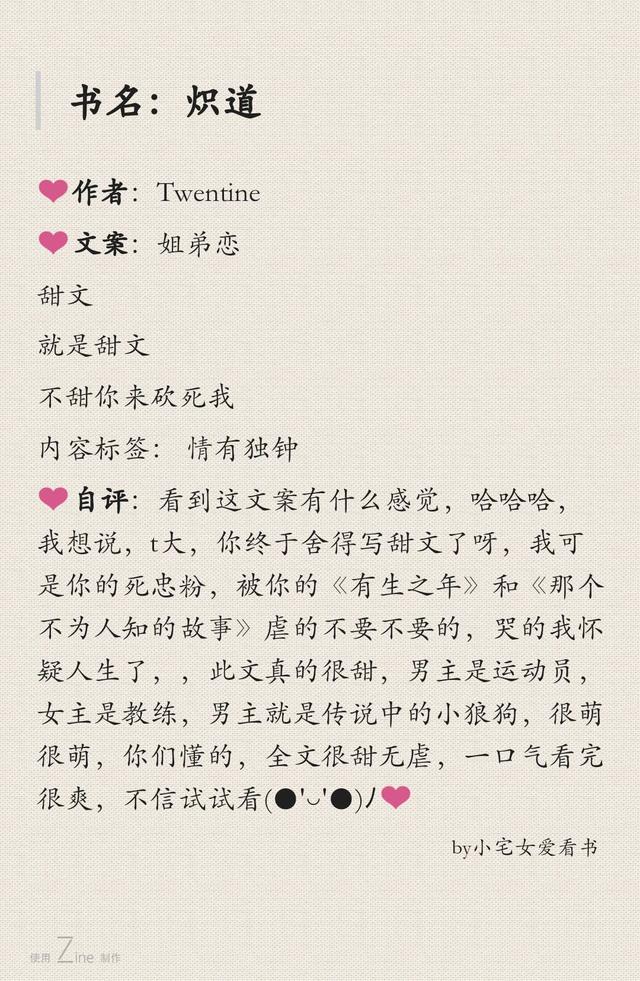 书名：炽道
作者：Twentine
文案：姐弟恋
甜文
就是甜文
不甜你来砍死我
内容标签： 情有独钟
自评：看到这文案有什么感觉，哈哈哈，
我想说，t大，你终于舍得写甜文了呀，我可
是你的死忠粉，被你的《有生之年》和《那个
不为人知的故事》虐的不要不要的，哭的我怀
疑人生了，，此文真的很甜，男主是运动员，
女主是教练，男主就是传说中的小狼狗，很萌
很萌，你们懂的，全文很甜无虐，一口气看完
很爽，不信试试看(●'◡'●)ﾉ
by小宅女爱看书
使用 Zine 制作